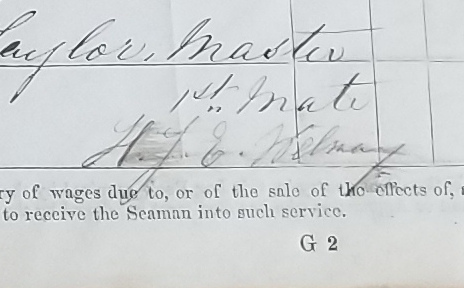 Taylor, Master
1st Mate
H. J. E. Welmay
ry of wages due to, or of the sale of the effects of,
to receive the Seaman into such service.
G 2